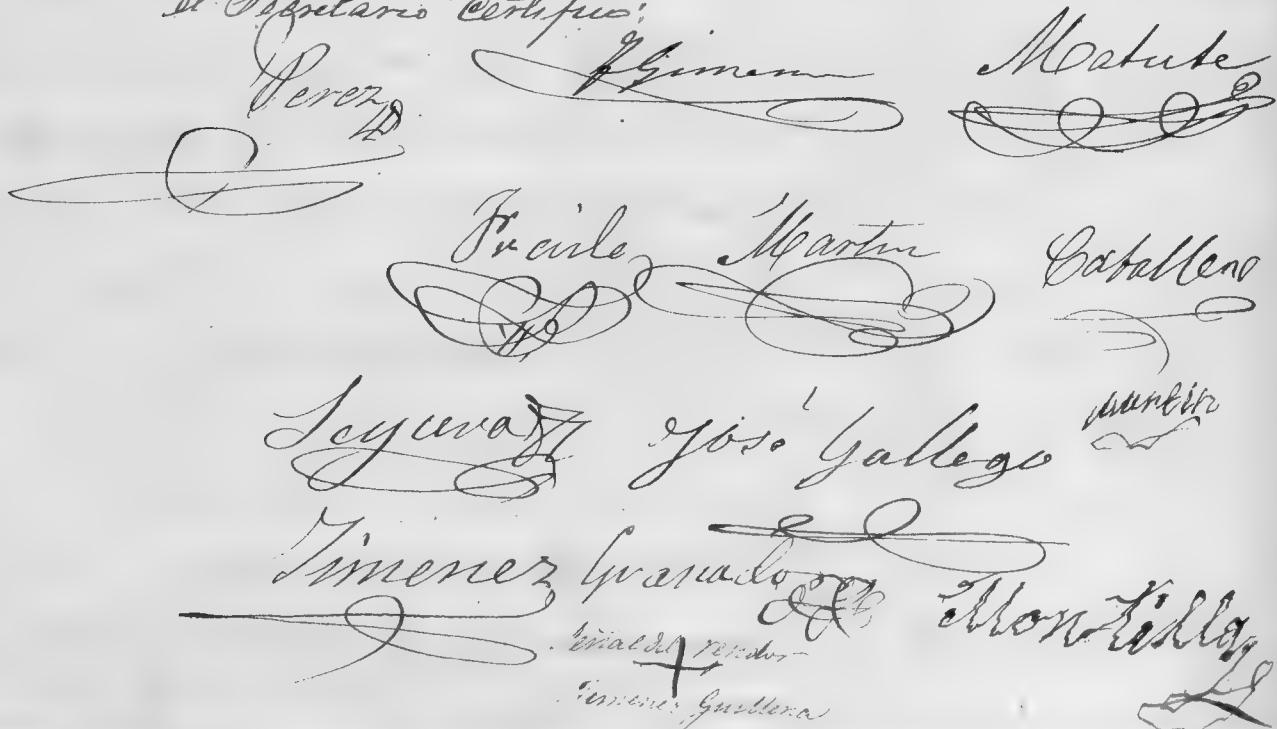 el Secretario Certifico:
Perez Gimenez Matute
Fraile Martin Caballero
Segura José Gallego Martin
Jimenez Granado Montilla
Señal del
Jimenez Guillena